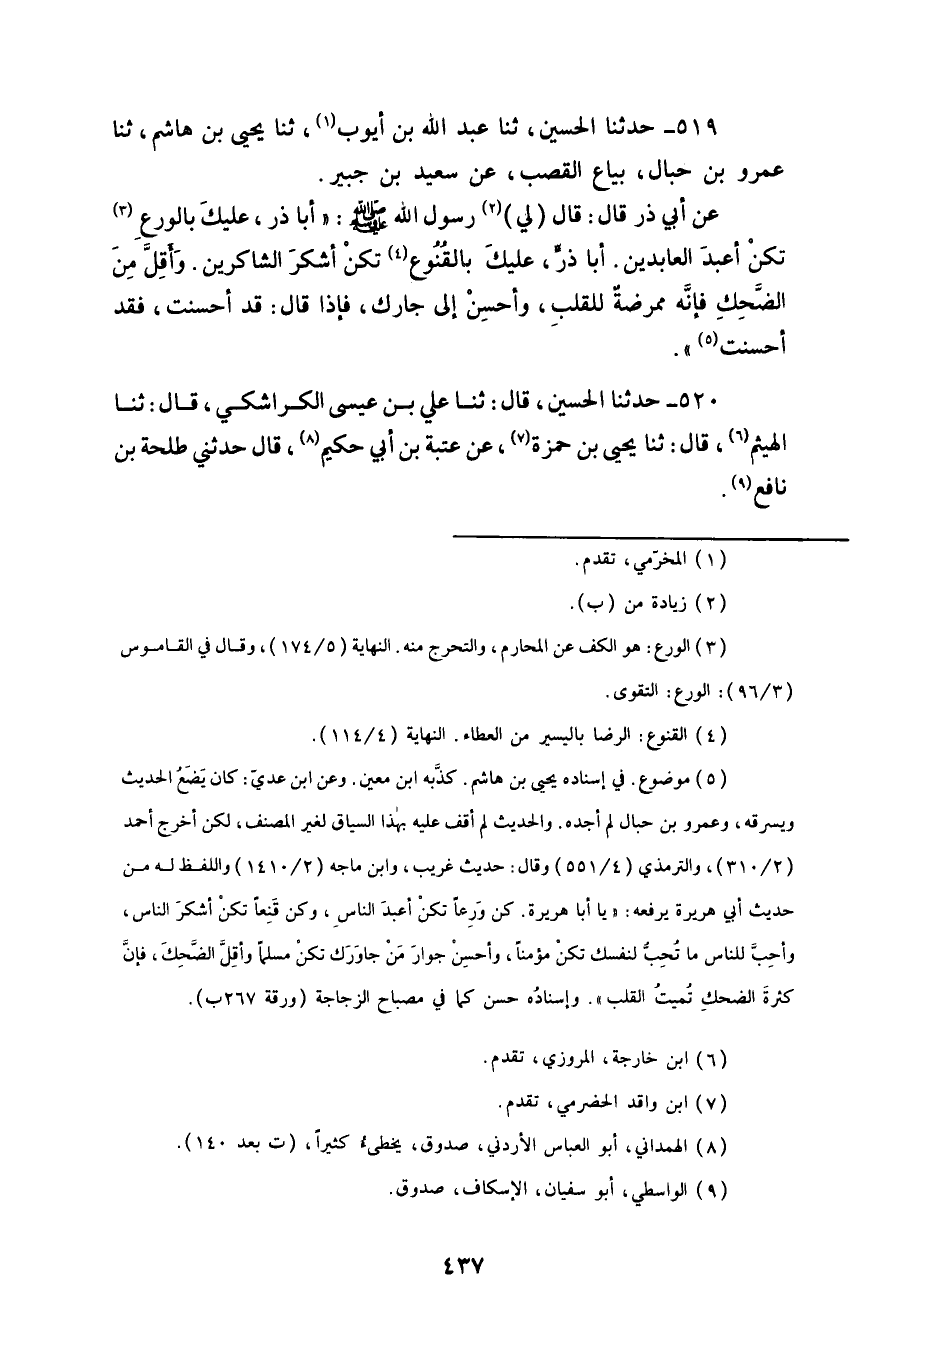 ٥١٩ـ حدثنا الحسين، ثنا عبد الله بن أيوب(١)، ثنا يحيى بن هاشم، ثنا
عمرو بن حبال، بياع القصب، عن سعيد بن جبير.
عن أبي ذر قال: قال (لي)(٢) رسول الله ﷺ: «أبا ذر، عليكَ بالورعِ(٣)
تكنْ أعبدَ العابدين. أبا ذرٍّ، عليكَ بالقُنُوع(٤) تكنْ أشكرَ الشاكرين. وَأَقِلَّ مِنَ
الضَّحِكِ فإنَّه ممرضةٌ للقلبِ، وأحسِنْ إلى جارك، فإذا قال: قد أحسنت، فقد
أحسنت(٥)».
٥٢٠ـ حدثنا الحسين، قال: ثنا علي بن عيسى الكراشكي، قال: ثنا
الهيثم(٦)، قال: ثنا يحيى بن حمزة(٧)، عن عتبة بن أبي حكيم(٨)، قال حدثني طلحة بن
نافع(٩).
(١) المخرّمي، تقدم.
(٢) زيادة من (ب).
(٣) الورع: هو الكف عن المحارم، والتحرج منه. النهاية (١٧٤/٥)، وقال في القاموس
(٩٦/٣): الورع: التقوى.
(٤) القنوع: الرضا باليسير من العطاء. النهاية (١١٤/٤).
(٥) موضوع. في إسناده يحيى بن هاشم. كذَّبه ابن معين. وعن ابن عديّ: كان يَضَعُ الحديث
ويسرقه، وعمرو بن حبال لم أجده. والحديث لم أقف عليه بهٰذا السياق لغير المصنف، لكن أخرج أحمد
(٣١٠/٢)، والترمذي (٥٥١/٤) وقال: حديث غريب، وابن ماجه (١٤١٠/٢) واللفظ له من
حديث أبي هريرة يرفعه: «يا أبا هريرة. كن وَرِعاً تكنْ أعبدَ الناسِ، وكن قَنِعاً تكنْ أشكرَ الناس،
وأحِبَّ للناس ما تُحِبُّ لنفسك تكنْ مؤمناً، وأحسِنْ جوارَ مَنْ جاوَرَك تكنْ مسلماً وأقِلَّ الضَّحِكَ، فإنَّ
كثرةَ الضحكِ تُميتُ القلب». وإسنادُه حسن كما في مصباح الزجاجة (ورقة ٢٦٧ب).
(٦) ابن خارجة، المروزي، تقدم.
(٧) ابن واقد الحضرمي، تقدم.
(٨) الهمداني، أبو العباس الأردني، صدوق، يخطىءُ كثيراً، (ت بعد ١٤٠).
(٩) الواسطي، أبو سفيان، الإسكاف، صدوق.
٤٣٧